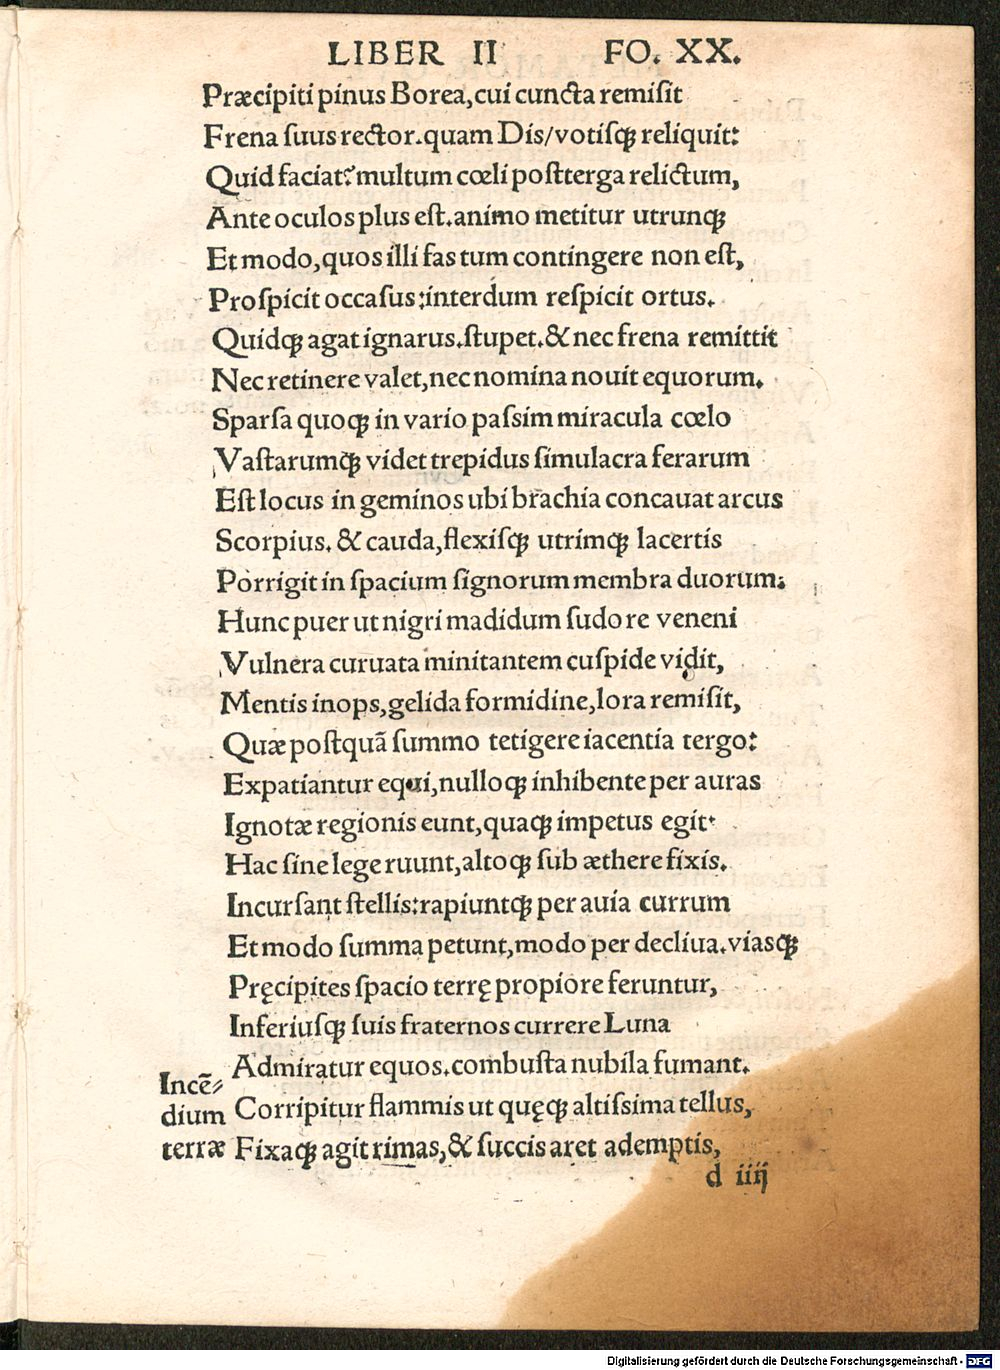 LIBER II FO. XX.
Præcipiti pinus Borea, cui cuncta remiſit
Frena ſuus rector. quam Dis/votiſq́ꝫ reliquit:
Quid faciat? multum cœli poſt terga relictum,
Ante oculos plus eſt. animo metitur utrunqꝫ
Et modo, quos illi fas tum contingere non eſt,
Proſpicit occaſus: interdum reſpicit ortus.
Quidqꝫ agat ignarus. ſtupet. & nec frena remittit
Nec retinere valet, nec nomina nouit equorum.
Sparſa quoqꝫ in vario paſsim miracula cœlo
Vaſtarumqꝫ videt trepidus ſimulacra ferarum
Eſt locus in geminos ubi brachia concauat arcus
Scorpius. & cauda, flexiſqꝫ utrimqꝫ lacertis
Porrigit in ſpacium ſignorum membra duorum:
Hunc puer ut nigri madidum ſudore veneni
Vulnera curuata minitantem cuſpide vidit,
Mentis inops, gelida formidine, lora remiſit,
Quæ poſtquã ſummo tetigere iacentia tergo:
Expatiantur equi, nulloqꝫ inhibente per auras
Ignotæ regionis eunt, quaqꝫ impetus egit.
Hac ſine lege ruunt, altoqꝫ ſub æthere fixis.
Incurſant ſtellis: rapiuntqꝫ per auia currum
Et modo ſumma petunt, modo per decliua. viasqꝫ
Pręcipites ſpacio terrę propiore feruntur,
Inferiuſqꝫ ſuis fraternos currere Luna
Admiratur equos. combuſta nubila fumant.
Incẽ⸗
dium
terræ
Corripitur flammis ut quęqꝫ altiſsima tellus,
Fixaqꝫ agit rimas, & ſuccis aret ademptis,
d iiij
Digitalisierung gefördert durch die Deutsche Forschungsgemeinschaft - DFG